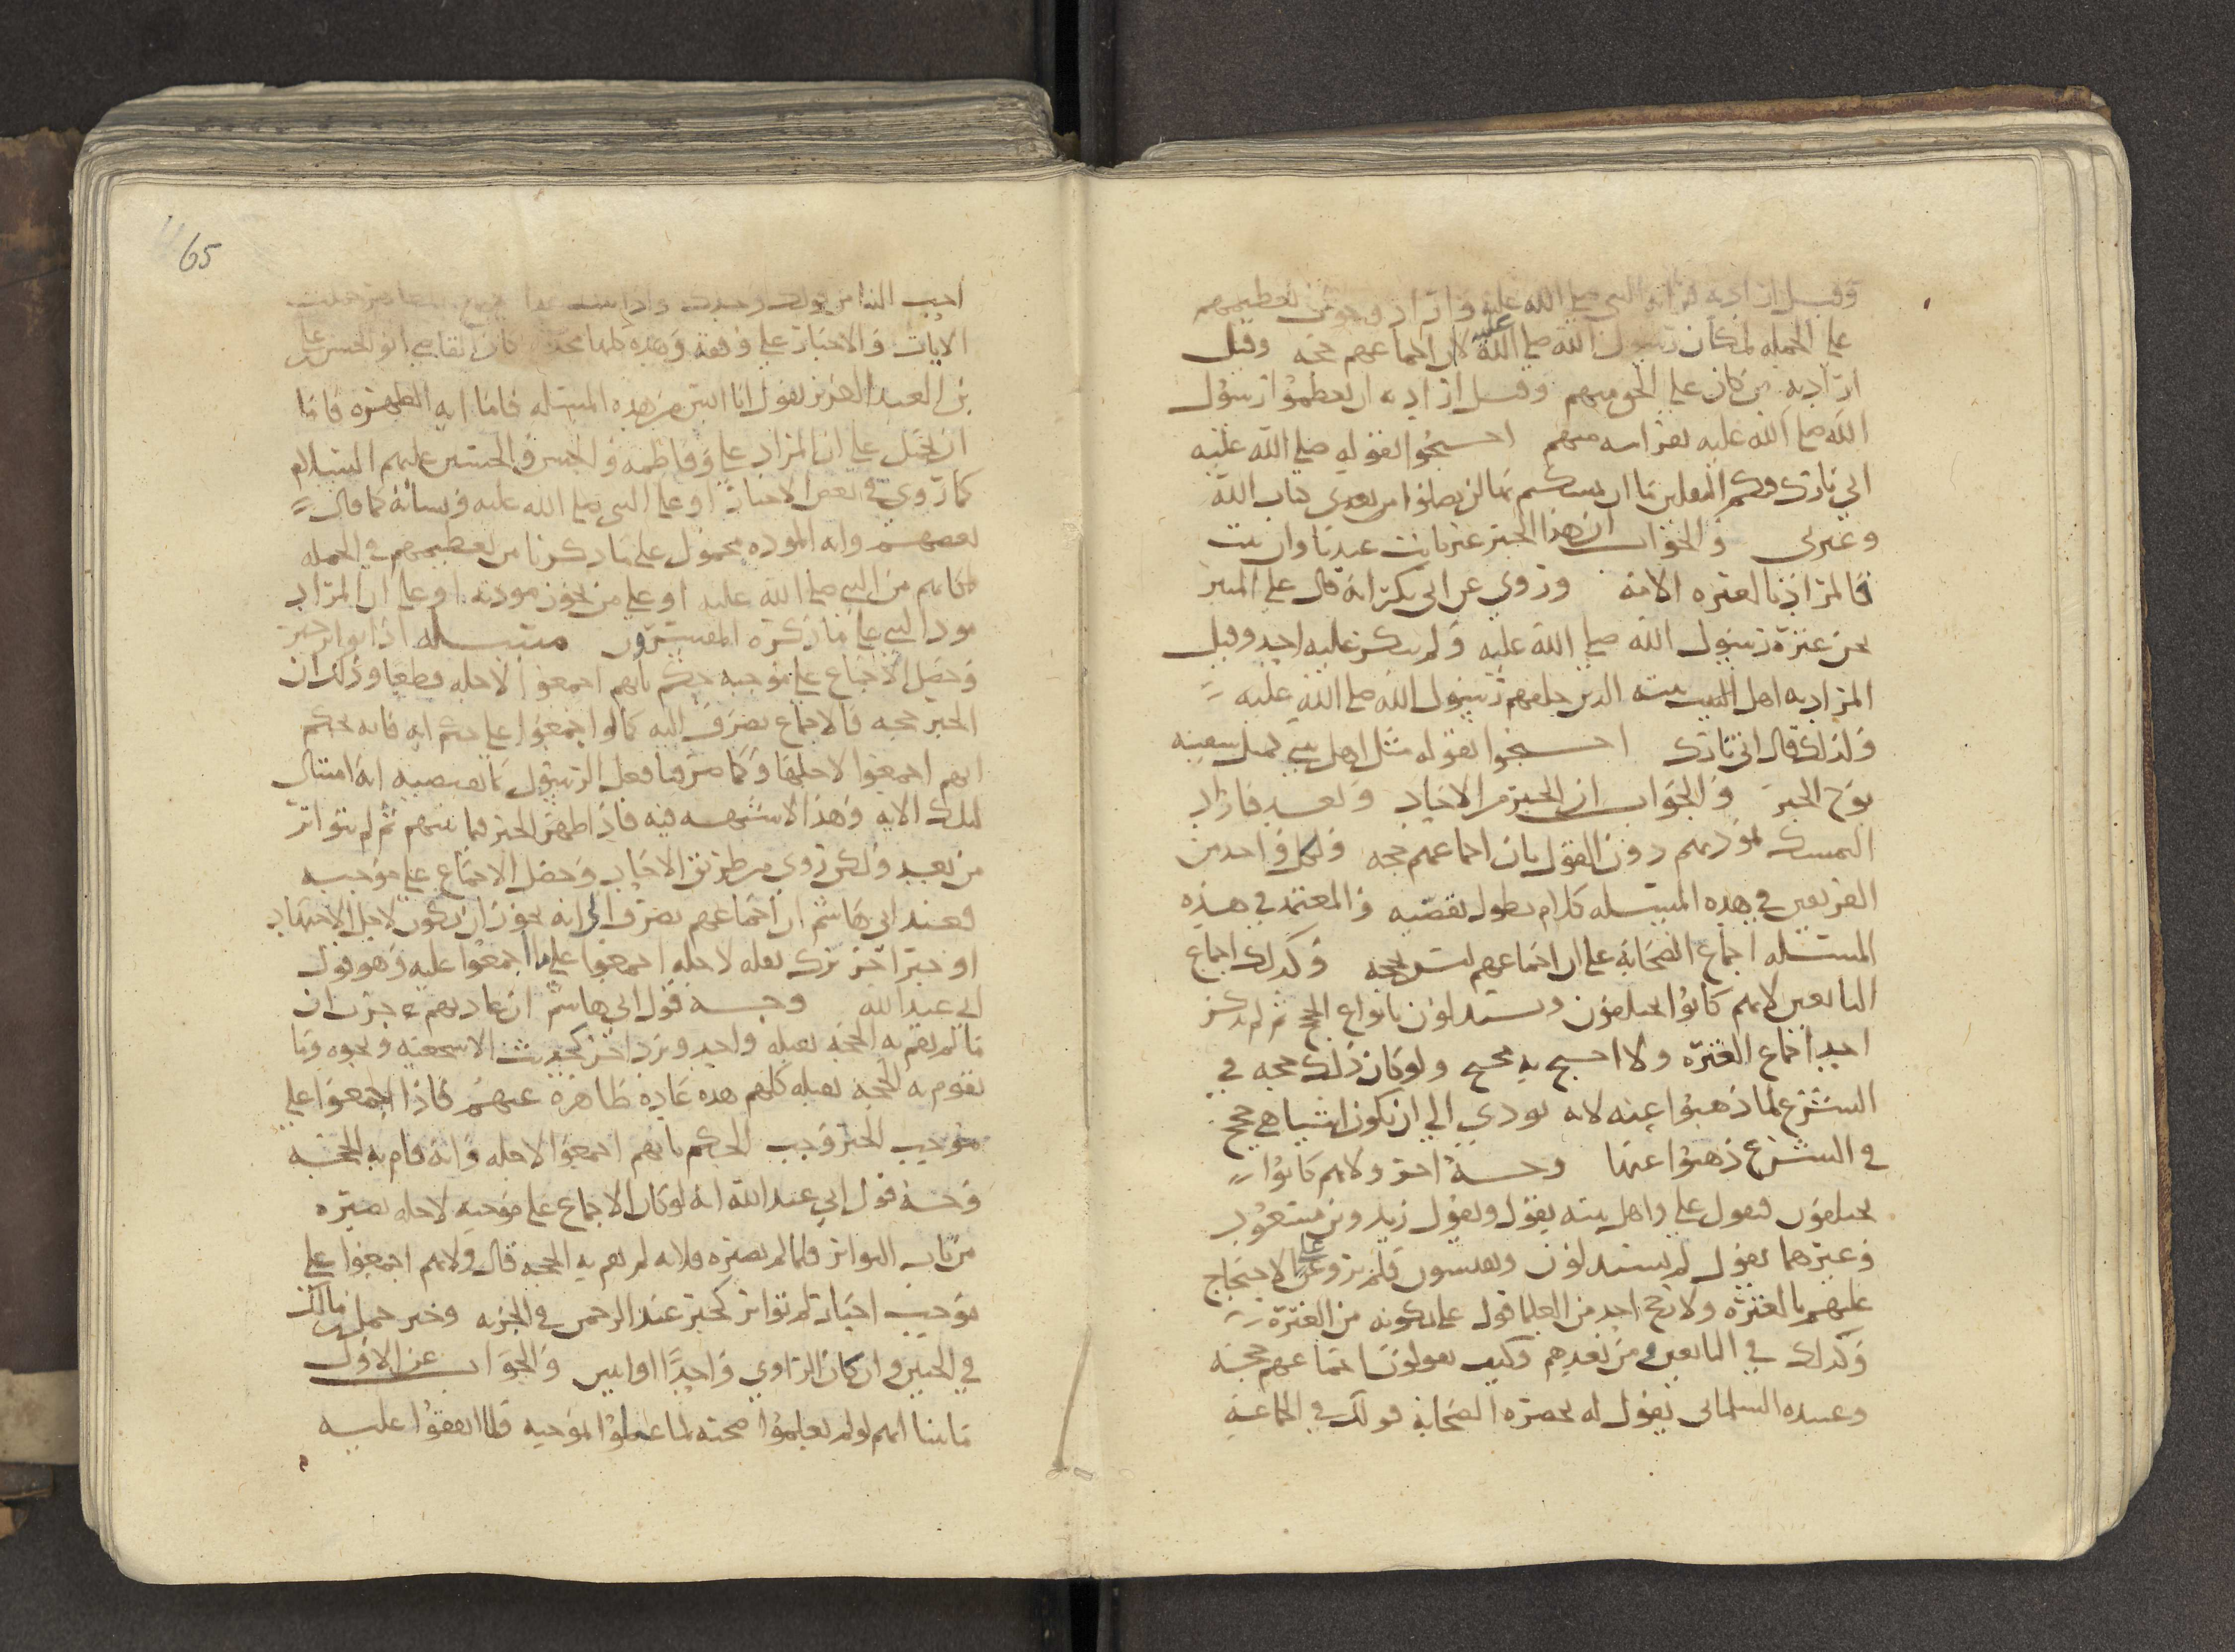 وقيل اراد به قرابه النبي صلى الله عليه واراد وجوب تعظيمهم
على الجمله لمكان رسول الله صلى الله عليه لا ان اجماعهم حجه وقيل
اراد به من كان على الحق منهم وقيل اراد به ان يعظموا رسول
الله صلى الله عليه لقرابته منهم احتجوا بقوله صلى الله عليه
اني تارك فيكم الثقلين ما ان تمسكتم بهما لن تضلوا من بعدي كتاب الله
وعترتي والجواب ان هذا الخبر غير ثابت عندنا وان ثبت
فالمراد بالعتره الامه وروي عن ابي بكر انه قال على المنبر
نحن عترة رسول الله صلى الله عليه ولم ينكر عليه احد وقيل
المراد به اهل بيته الذين خلفهم رسول الله صلى الله عليه
ولذلك قال اني تارك احتجوا بقوله مثل اهل بيتي كمثل سفينه
نوح الخبر والجواب ان الخبر من الاحاد وبعد فاراد
التمسك بمودتهم دون القول بان اجماعهم حجه ولكل واحد من
الفريقين في هذه المسئله كلام يطول بقصيه والمعتمد في هذه
المسئله اجماع الصحابه على ان اجماعهم ليس بحجه وكذلك اجماع
التابعين لانهم كانوا يختلفون ويستدلون بانواع الحجج ثم لم يذكر
احد اجماع العترة ولا احتج به محتج ولو كان ذلك حجه في
الشرع لما ذهبوا عنه لانه يودي الى ان تكون اشيا هي حجج
في الشرع ذهبوا عنها وجه اخر ولانهم كانوا
يختلفون فيقول علي واهل بيته بقول ويقول زيد وبن مسعود
وغيرهما بقول ثم يستدلون ويقيسون فلم يرو عن علي الاحتجاج
عليهم بالعترة ولا رجح احد من العلما قول علي لكونه من العترة
وكذلك في التابعين ومن بعدهم وكيف يقولون اجماعهم حجه
وعبيده السلماني يقول له بحضرة الصحابة قولك في الجماعة
65
احب الينا من قولك وحدك
الايات والاخبار على وفقه وهذه كلها حجه كان القاضي ابو الحسن علي
بن العبد العزيز يقول انا ابين من هذه المسئله فاما ايه الطهره فاما
ان تحمل على ان المراد علي وفاطمه والحسن والحسين عليهم السلام
كما روي في بعض الاخبار او على النبي صلى الله عليه ونسائه كما قال
بعضهم وايه الموده محمول على ما ذكرنا من تعظيمهم في الجمله
لمكانهم من النبي صلى الله عليه او على من تجوز مودته او على ان المراد
مود النبي على ما ذكره المفسرون مسئله اذا تواتر خبر
وحصل الاجماع على موجبه حكم بانهم اجمعوا لاجله قطعا وذلك ان
الخبر حجه فالاجماع يصرف اليه كما لو اجمعوا على حكم ايه فانه يحكم
انهم اجمعوا لاجلها وكما صرفنا فعل الرسول بما تقتضيه انه امتثال
لتلك الايه وهذا لا شبهه فيه فاذا ظهر الخبر فيما بينهم ثم لم يتواتر
من بعد ولكن روي من طريق الاحاد وحصل الاجماع على موجبه
فعند ابي هاشم ان اجماعهم يصرف الى انه يجوز ان يكون لاجل الاجتهاد
او خبر اخر ترك نقله لاجله اجمعوا على ما اجمعوا عليه وهو قول
ابي عبد الله وجه قول ابي هاشم ان عادتهم جرت ان
ما لم تقم به الحجه يقبله واحد ويرد اخر كحديث الاشجعية ونحوه وما
تقوم به الحجه يقبله كلهم هذه عادة ظاهرة عنهم فاذا اجمعوا على
موجب الخبر وجب الحكم بانهم اجمعوا لاجله وانه قام به الحجه
وجه قول ابي عبد الله انه لو كان الاجماع على موجبه لاجله يصيره
من باب التواتر فلما لم يصيره فلانه لم تقم به الحجه قال ولانهم اجمعوا على
موجب اخبار لم تتواتر كخبر عبد الرحمن في الجزيه وخبر حمل بن مالك
في الجنين وان كان الراوي واحدًا او اثنين والجواب عن الاول
ما بينا انهم لو لم يعلموا صحته لما عملوا بموجبه فلما اتفقوا عليه